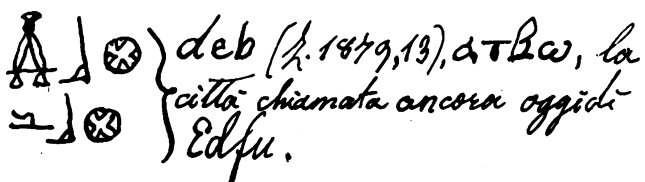 𓌥𓃀𓊖 deb (Z. 1879,13), ⲁⲧⲃⲱ, la
𓂧𓃀𓊖 città chiamata ancora oggidì
Edfu.